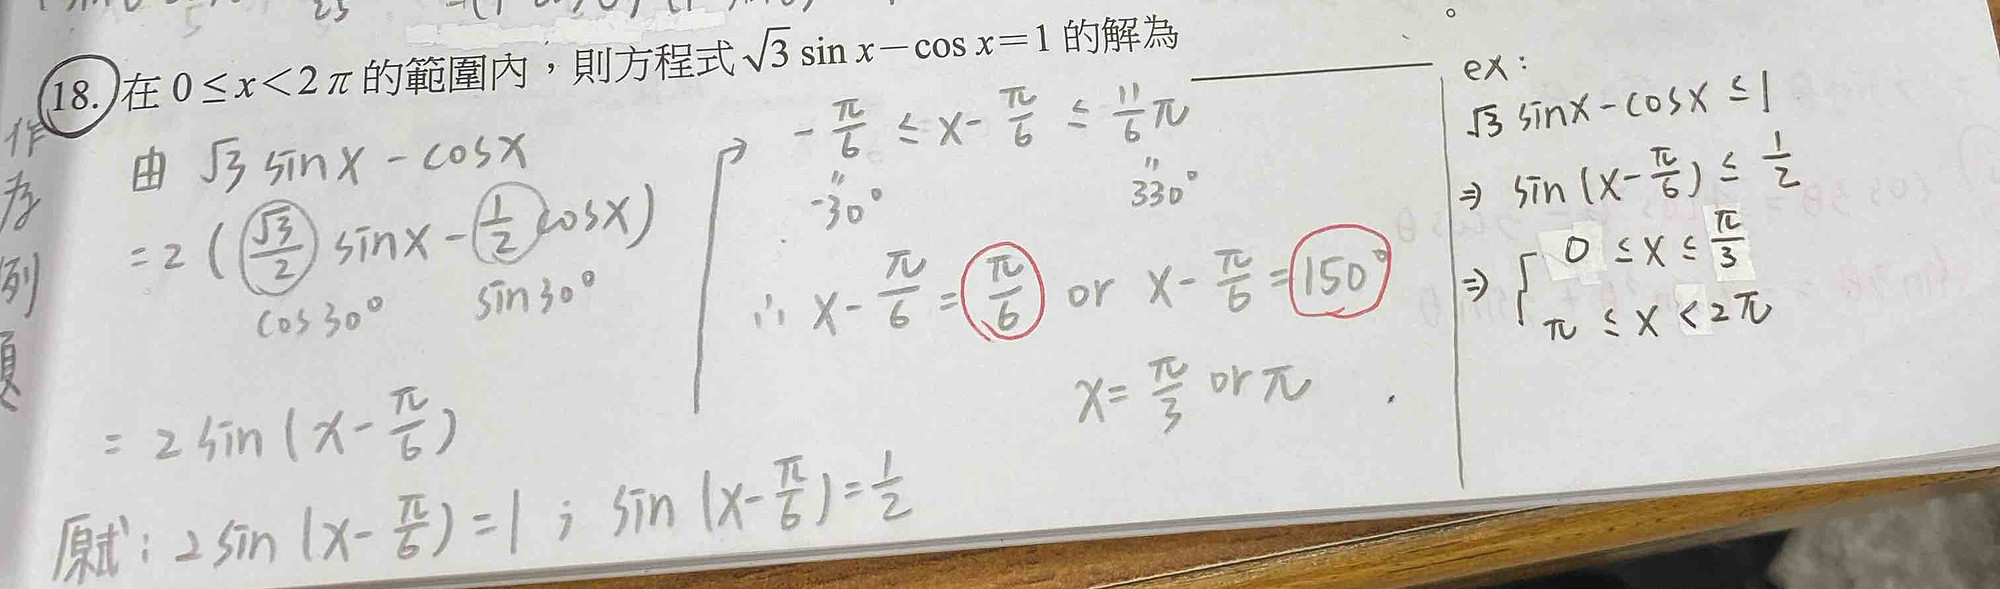 18. 在 0≤x<2π 的範圍內，則方程式 √3 sin x−cos x=1 的解為
由 √3 sinx - cosx
=2 ( √3/2 sinx - 1/2 cosx)
cos30° sin30°
= 2 sin (x - π/6)
原式: 2 sin (x - π/6) = 1 ; sin (x - π/6) = 1/2
-π/6 ≤ x - π/6 ≤ 11/6 π
" "
-30° 330°
∴ x - π/6 = π/6 or x - π/6 = 150°
x = π/3 or π
ex:
√3 sinx - cosx ≤ 1
⇒ sin (x - π/6) ≤ 1/2
⇒ { 0 ≤ x ≤ π/3
π ≤ x < 2π
作
為
例
頁